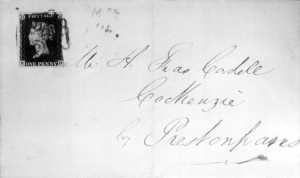 POSTAGE
ONE PENNY
H. Fras Cadell
Cockenzie
by Prestonpans